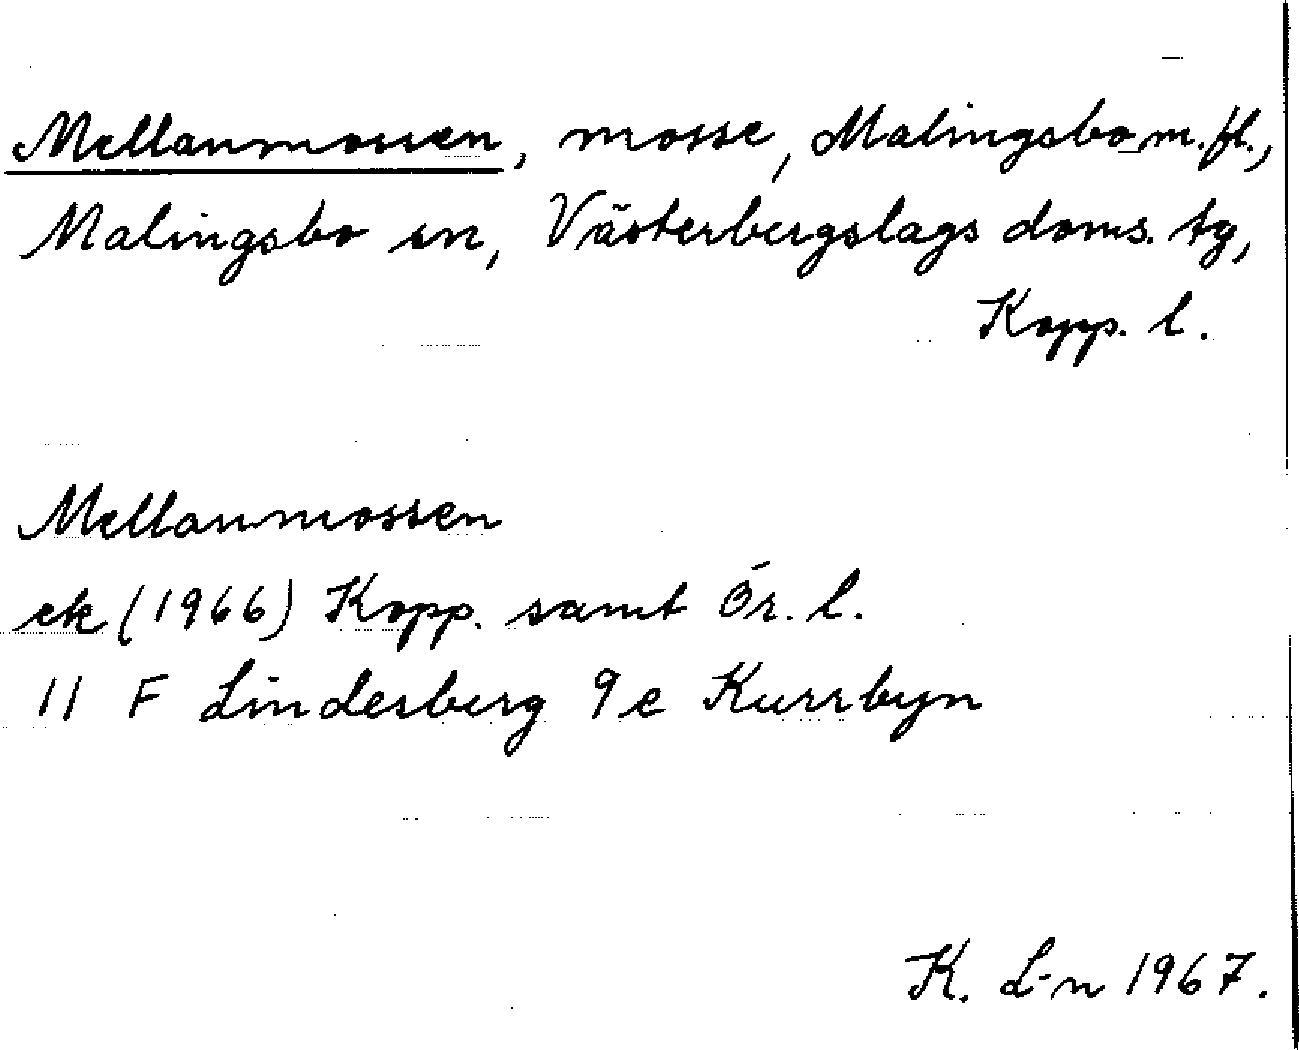 Mellanmossen, mosse, Malingsbo m.fl.,
Malingsbo sn, Västerbergslags doms. tg,
Kopp. l.
Mellanmossen
ek (1966) Kopp. samt Ör. l.
11 F Lindesberg 9e Kurrbyn
K. L-n 1967.